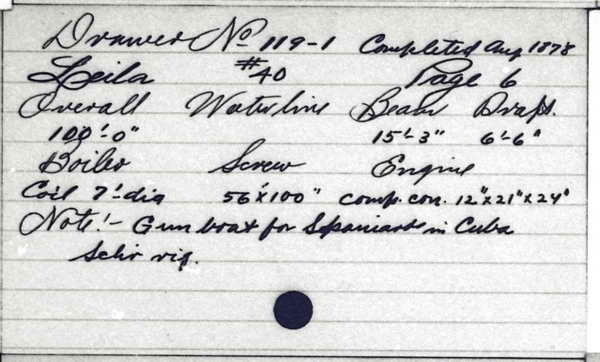 Drawer No 119-1 Completed Aug 1878
Leila #40 Page 6
Overall Waterline Beam Draft.
100'-0" 15'-3" 6'-6"
Boiler Screw Engine
Coil 7'-dia 56"x100" comp. con. 12"x21"x24"
Note:- Gun boat for Spaniards in Cuba
Schr rig.